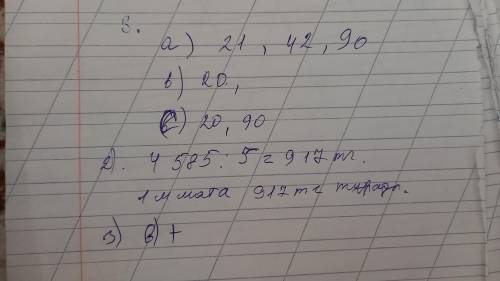 S.
a) 21, 42, 90
b) 20,
c) 20, 90
2). 4 585 : 5 = 917 тг.
1 м мата 917 тг тұрады.
3) b) +